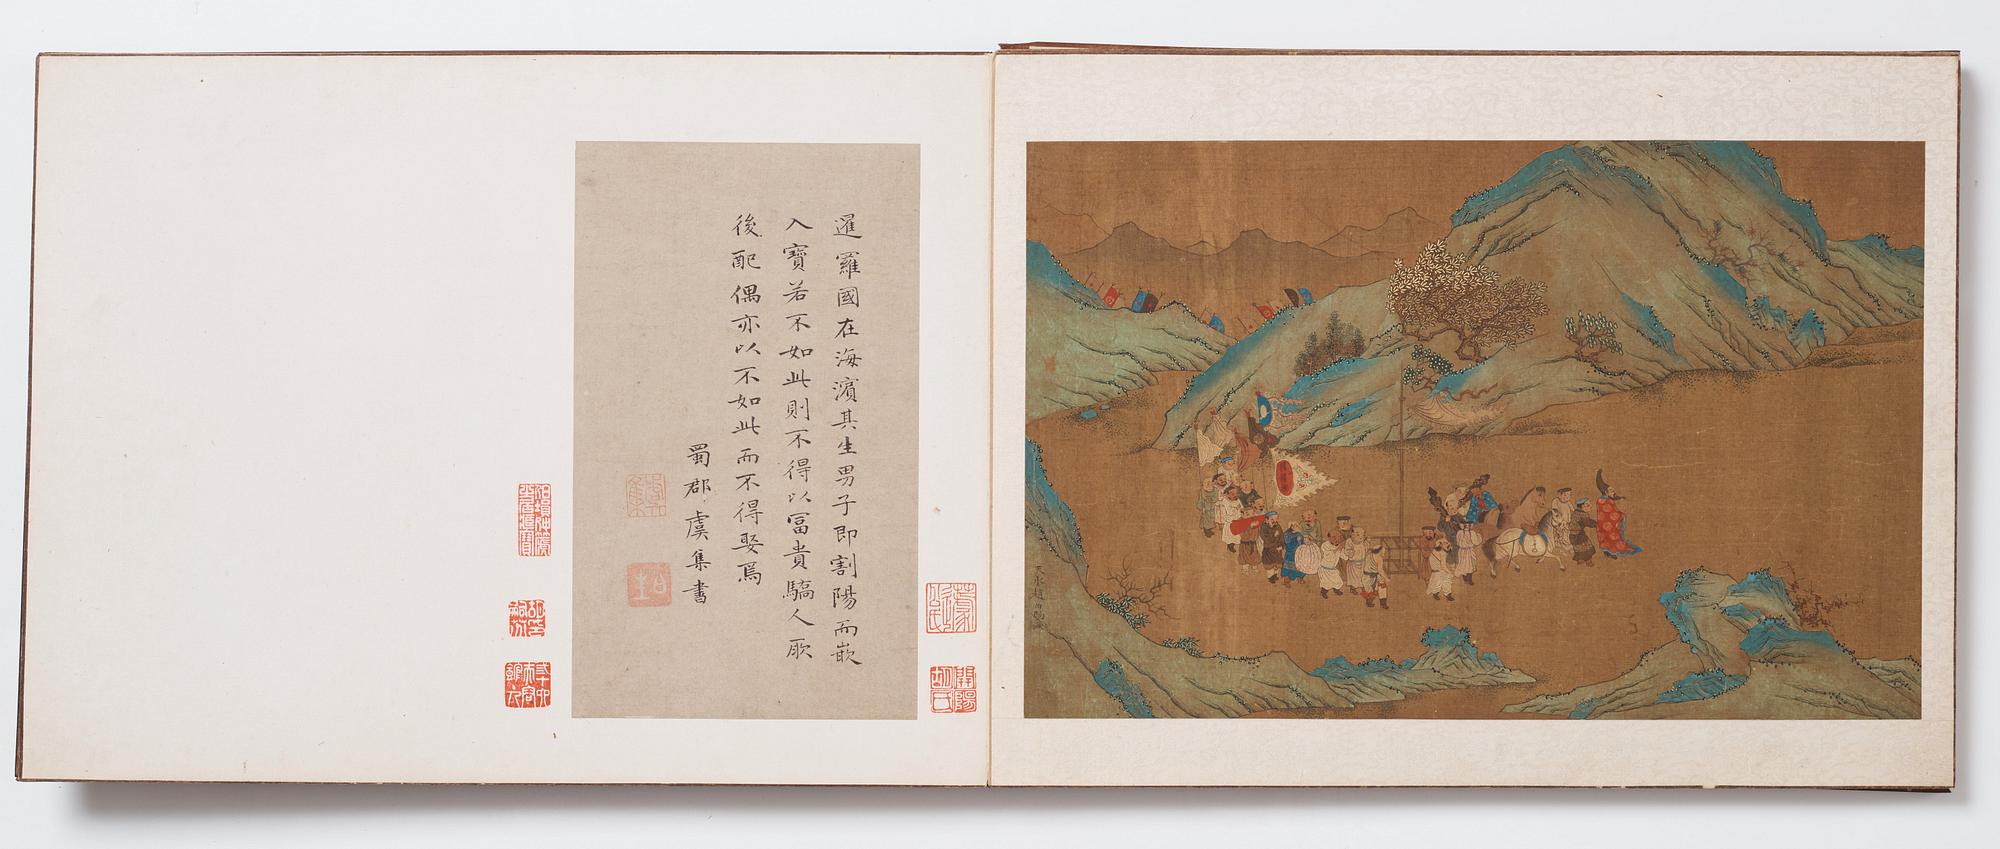 暹羅國在海濵其生男子即割陽而嵌
入寶若不如此則不得以冨貴驕人厥
後配偶亦以不如此而不得娶焉
蜀郡虞集書